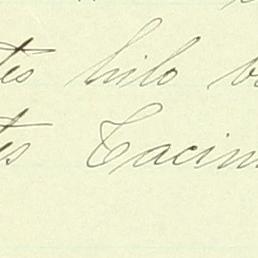 tes hilo
tes Tacim